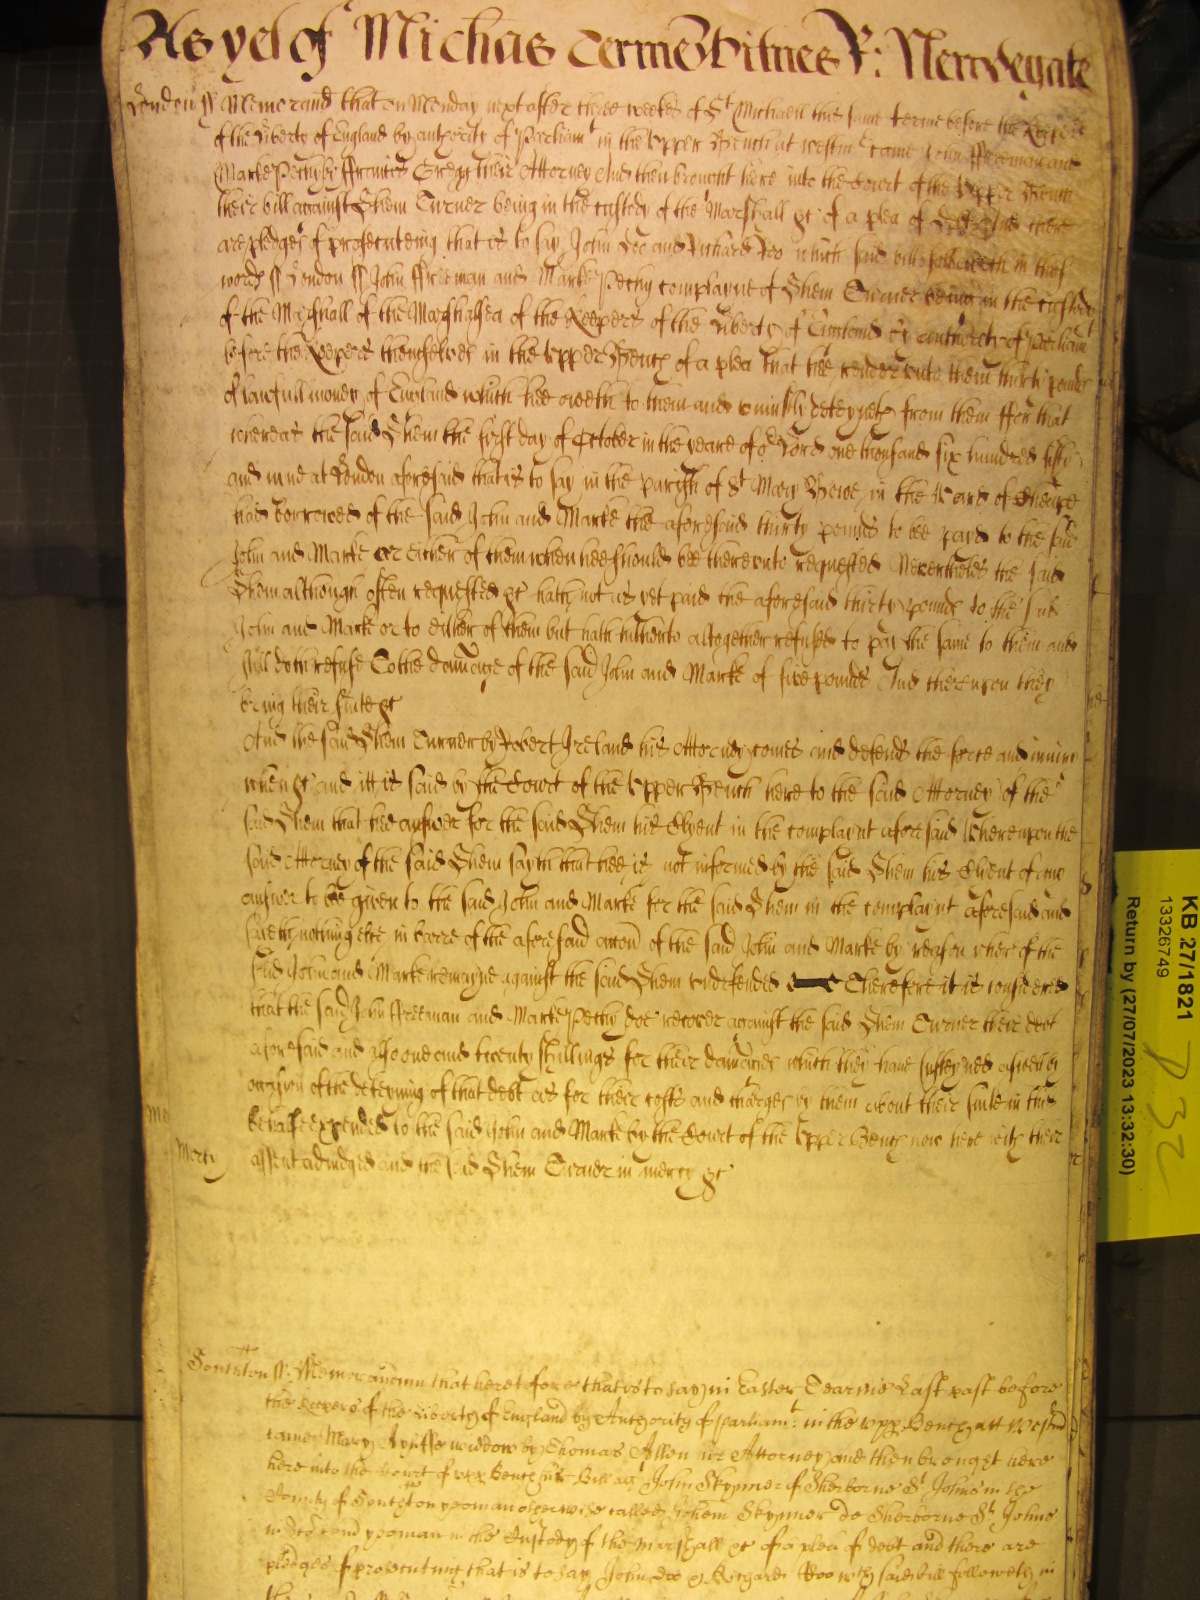 As yet of Michas Terme Witnes R: Newdegate
London ss Memorand that on Monday next after three weekes of St Michaell this same terme before the Keeps
of the Liberty of England by authoritie of Parliamt in the Upper Bench at Westmr came John ffreeman and
Marke Pethy by ffrancis Gregg their Attorney And then brought here into the Court of the Upper Bench
their bill against Shem Turner being in the custody of the Marshall &c of a plea of Debt And there
are pledges of prosecuteing that is to say John Doe and Richard Roo which said bill followeth in thes
words ss London ss John ffreeman and Marke Pethy complayne of Shem Turner being in the custody
of the Marshall of the Marshalsea of the Keepers of the Liberty of England by authority of Parliamt
before the Keepers themselves in the Upper Bench of a plea that hee render unto them thirty pounds
of lawfull money of England which hee oweth to them and uniustly deteyneth from them ffor that
whereas the said Shem the first day of October in the yeare of or Lord one thousand six hundred fifty
and nyne at London aforesaid that is to say in the parish of St Mary Bowe in the Ward of Cheape
had borrowed of the said John and Marke the aforesaid thirty pounds to be payd to the said
John and Marke or either of them when hee should bee thereunto requested Neverthelesse the said
Shem although often requested &c hath not as yet paid the aforesaid thirty pounds to the said
John and Marke or to either of them but hath hitherto altogether refused to pay the same to them and
still doth refuse To the damage of the said John and Marke of five pounds And thereupon they
bring their suite &c
And the said Shem Turner by Robert Ireland his Attorney comes and defends the force and iniury
when &c and itt is said by the Court of the Upper Bench here to the said Attorney of the
said Shem that hee answer for the said Shem his Clyent in the complaynt aforesaid Whereupon the
said Attorney of the said Shem sayth that hee is not informed by the said Shem his Client of any
answer to be given to the said John and Marke for the said Shem in the complaynt aforesaid and
saieth nothing else in barre of the aforesaid accon of the said John and Marke by reason wherof the
said John and Marke remayne against the said Shem undefended Therefore it is considered
that the said John ffreeman and Marke Pethy doe recover against the said Shem Turner their debt
aforesaid and also one and twenty shillings for their damages which they have susteyned aswell by
occasion of the deteyning of that debt as for their costs and charges by them about their suite in this
behalfe expended to the said John and Marke by the Court of the Upper Bench now here with their
Mercy assent adiudged and the said Shem Turner in mercy &c
Southton ss: Memorandum that heretofore that is to say in Easter Tearme Last past before
the Keepers of the Liberty of England by Authority of parliamt: in the upp Bench att Westmr
came Mary Ayliffe widdow by Thomas Allen her Attorney and then brought here
here into the Court of upp Bench her Bill agt John Skynner of Sherborne St Johns in the
County of Southton yeoman otherwise called John Skynner de Sherborne St Johns
in yeoman in the Custody of the Marshall &c of a plea of debt and there are
pledges of prosecuting that is to say John Doo & Richard Roo wch said bill followeth in
KB 27/1821
13326749
Return by (27/07/2023 13:32:30)